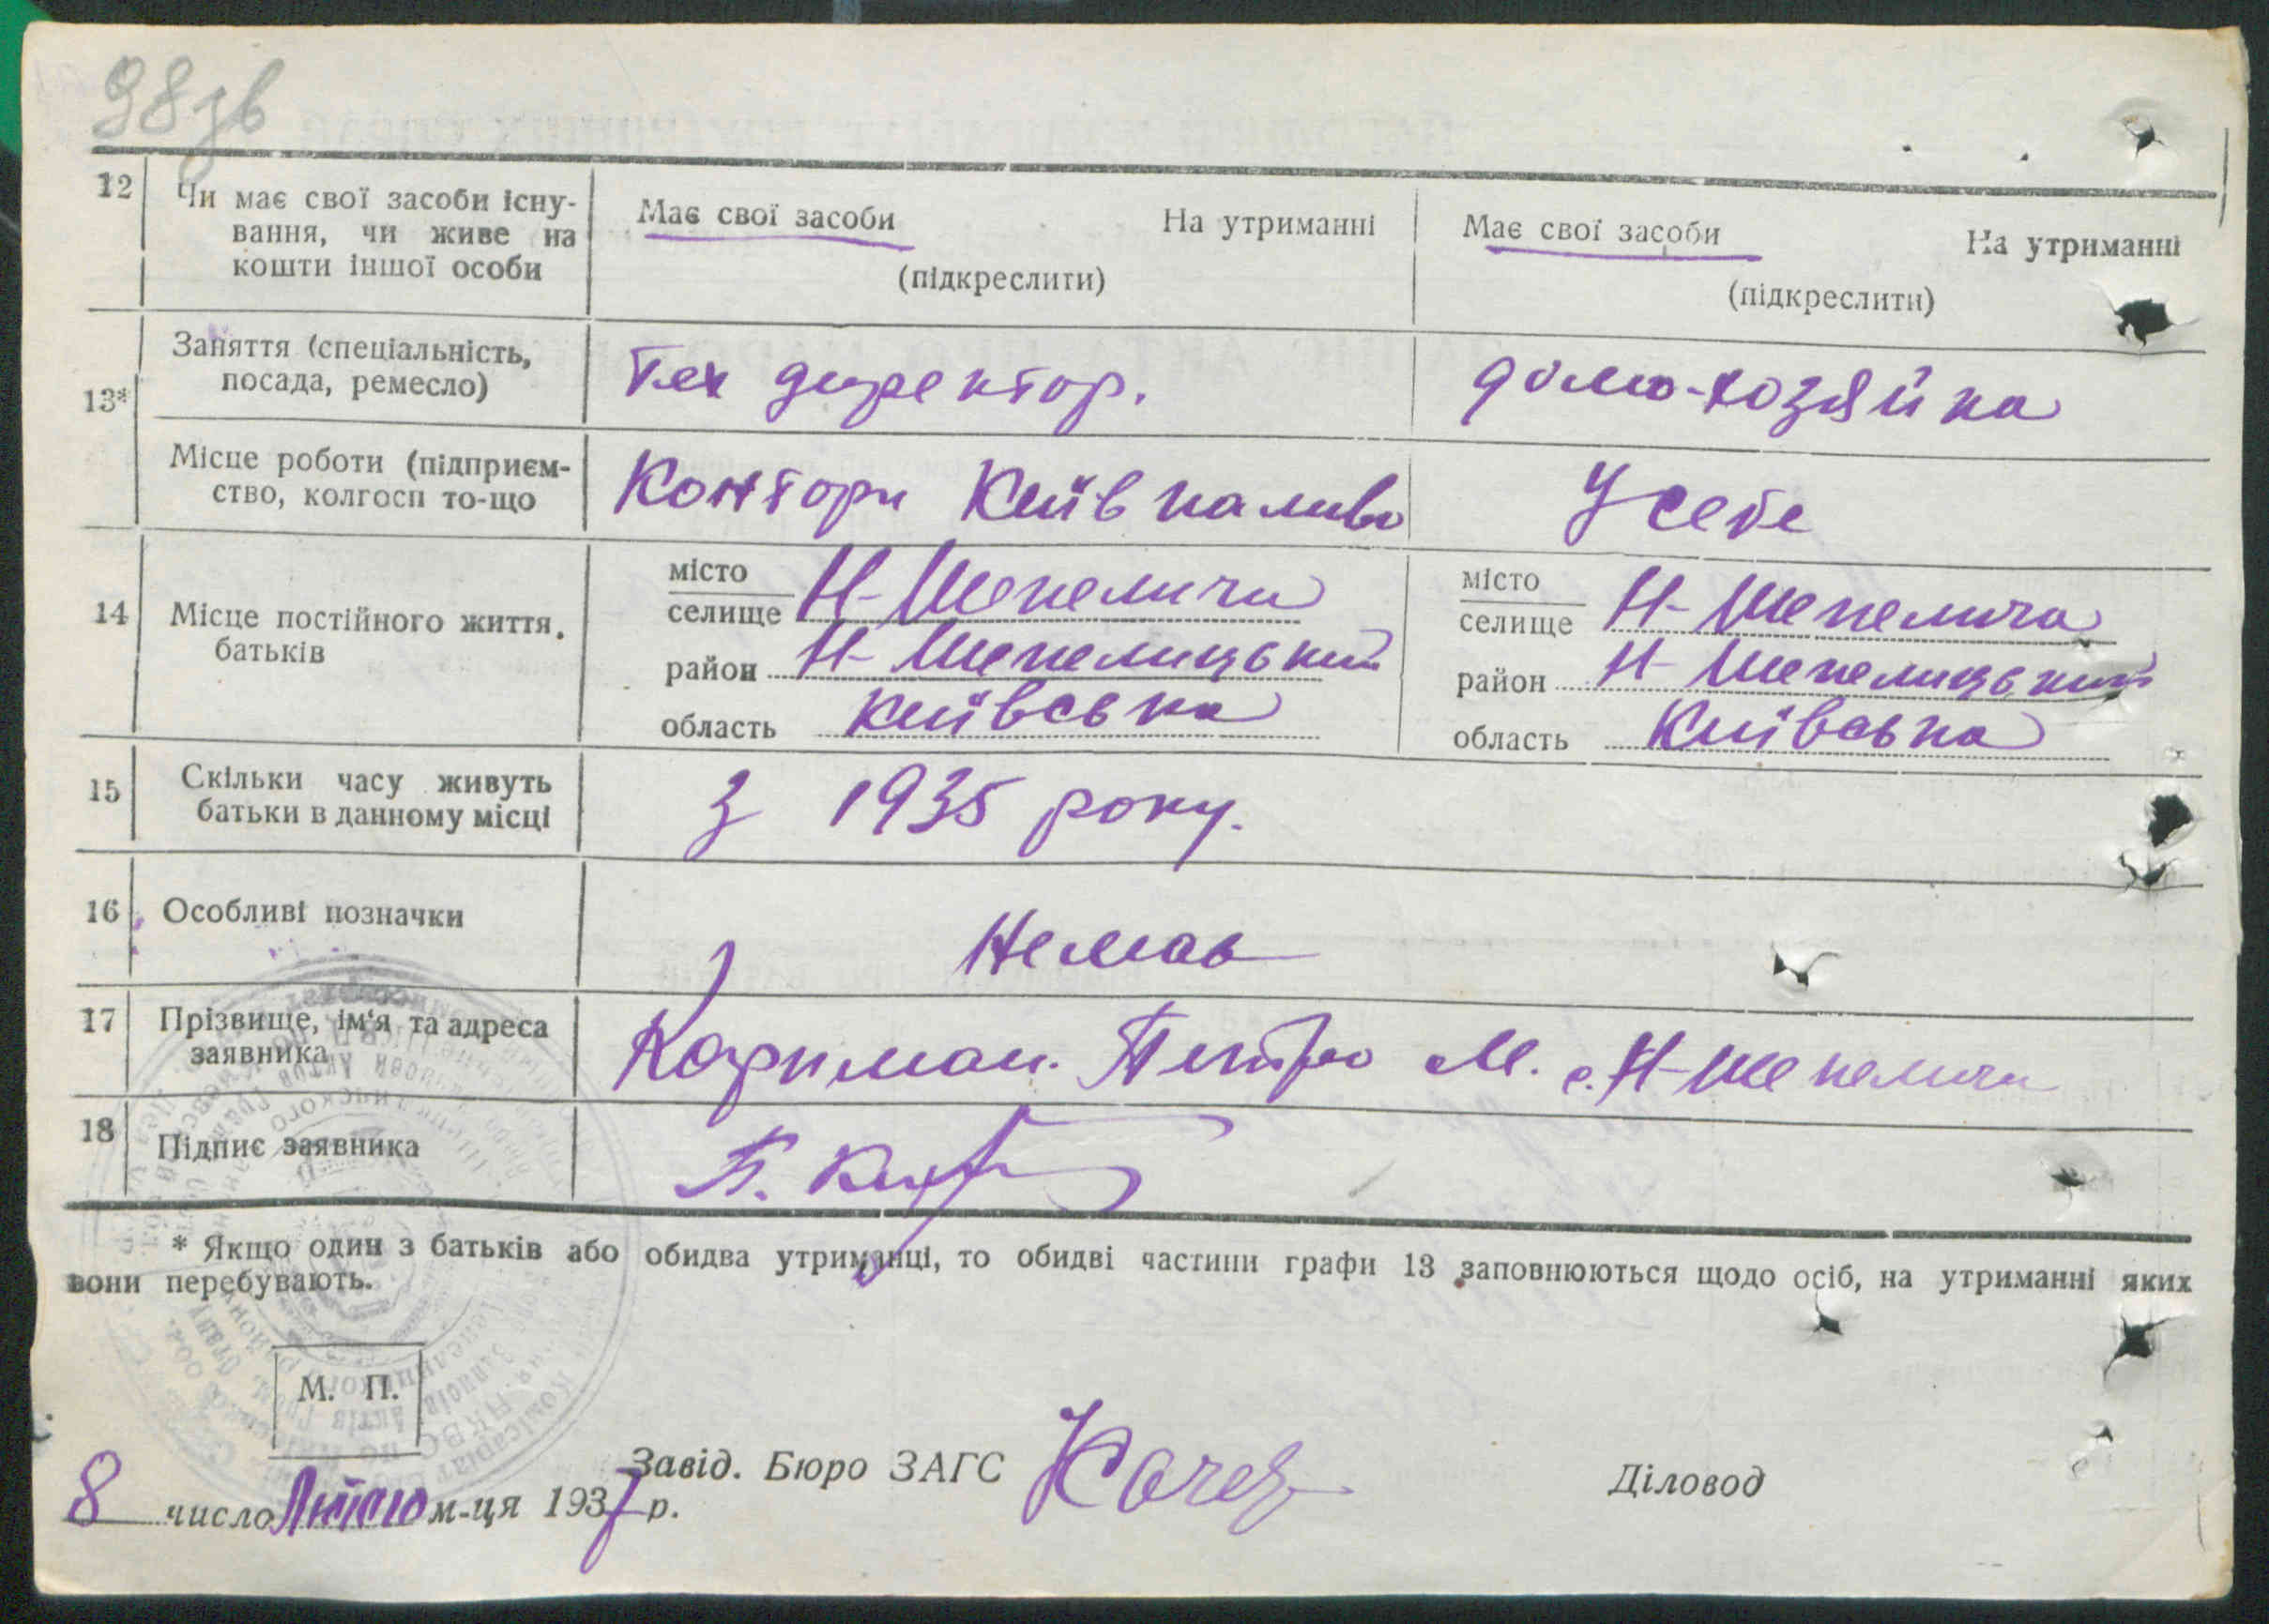 98зв
12 Чи має свої засоби існу-
вання, чи живе на
кошти іншої особи
Має свої засоби На утриманні
(підкреслити)
Має свої засоби На утриманні
(підкреслити)
13*
Заняття (спеціальність,
посада, ремесло)
Тех директор.
домо-хозяйка
Місце роботи (підприєм-
ство, колгосп то-що
Контори Київпаливо
У себе
14 Місце постійного життя
батьків
місто
селище Н-Шепеличи
район Н-Шепелицький
область Київська
місто
селище Н-Шепеличи
район Н-Шепелицький
область Київська
15 Скільки часу живуть
батьки в данному місці
З 1935 року.
16 Особливі позначки
Немає
17 Прізвище, ім'я та адреса
заявника
Петро М. с. Н-Шепеличи
18 Підпис заявника
П.
* Якщо один з батьків або обидва утриманці, то обидві частини графи 13 заповнюються щодо осіб, на утриманні яких
вони перебувають.
М. П.
8 число Лютого м-ця 1937 р.
Завід. Бюро ЗАГС
Діловод